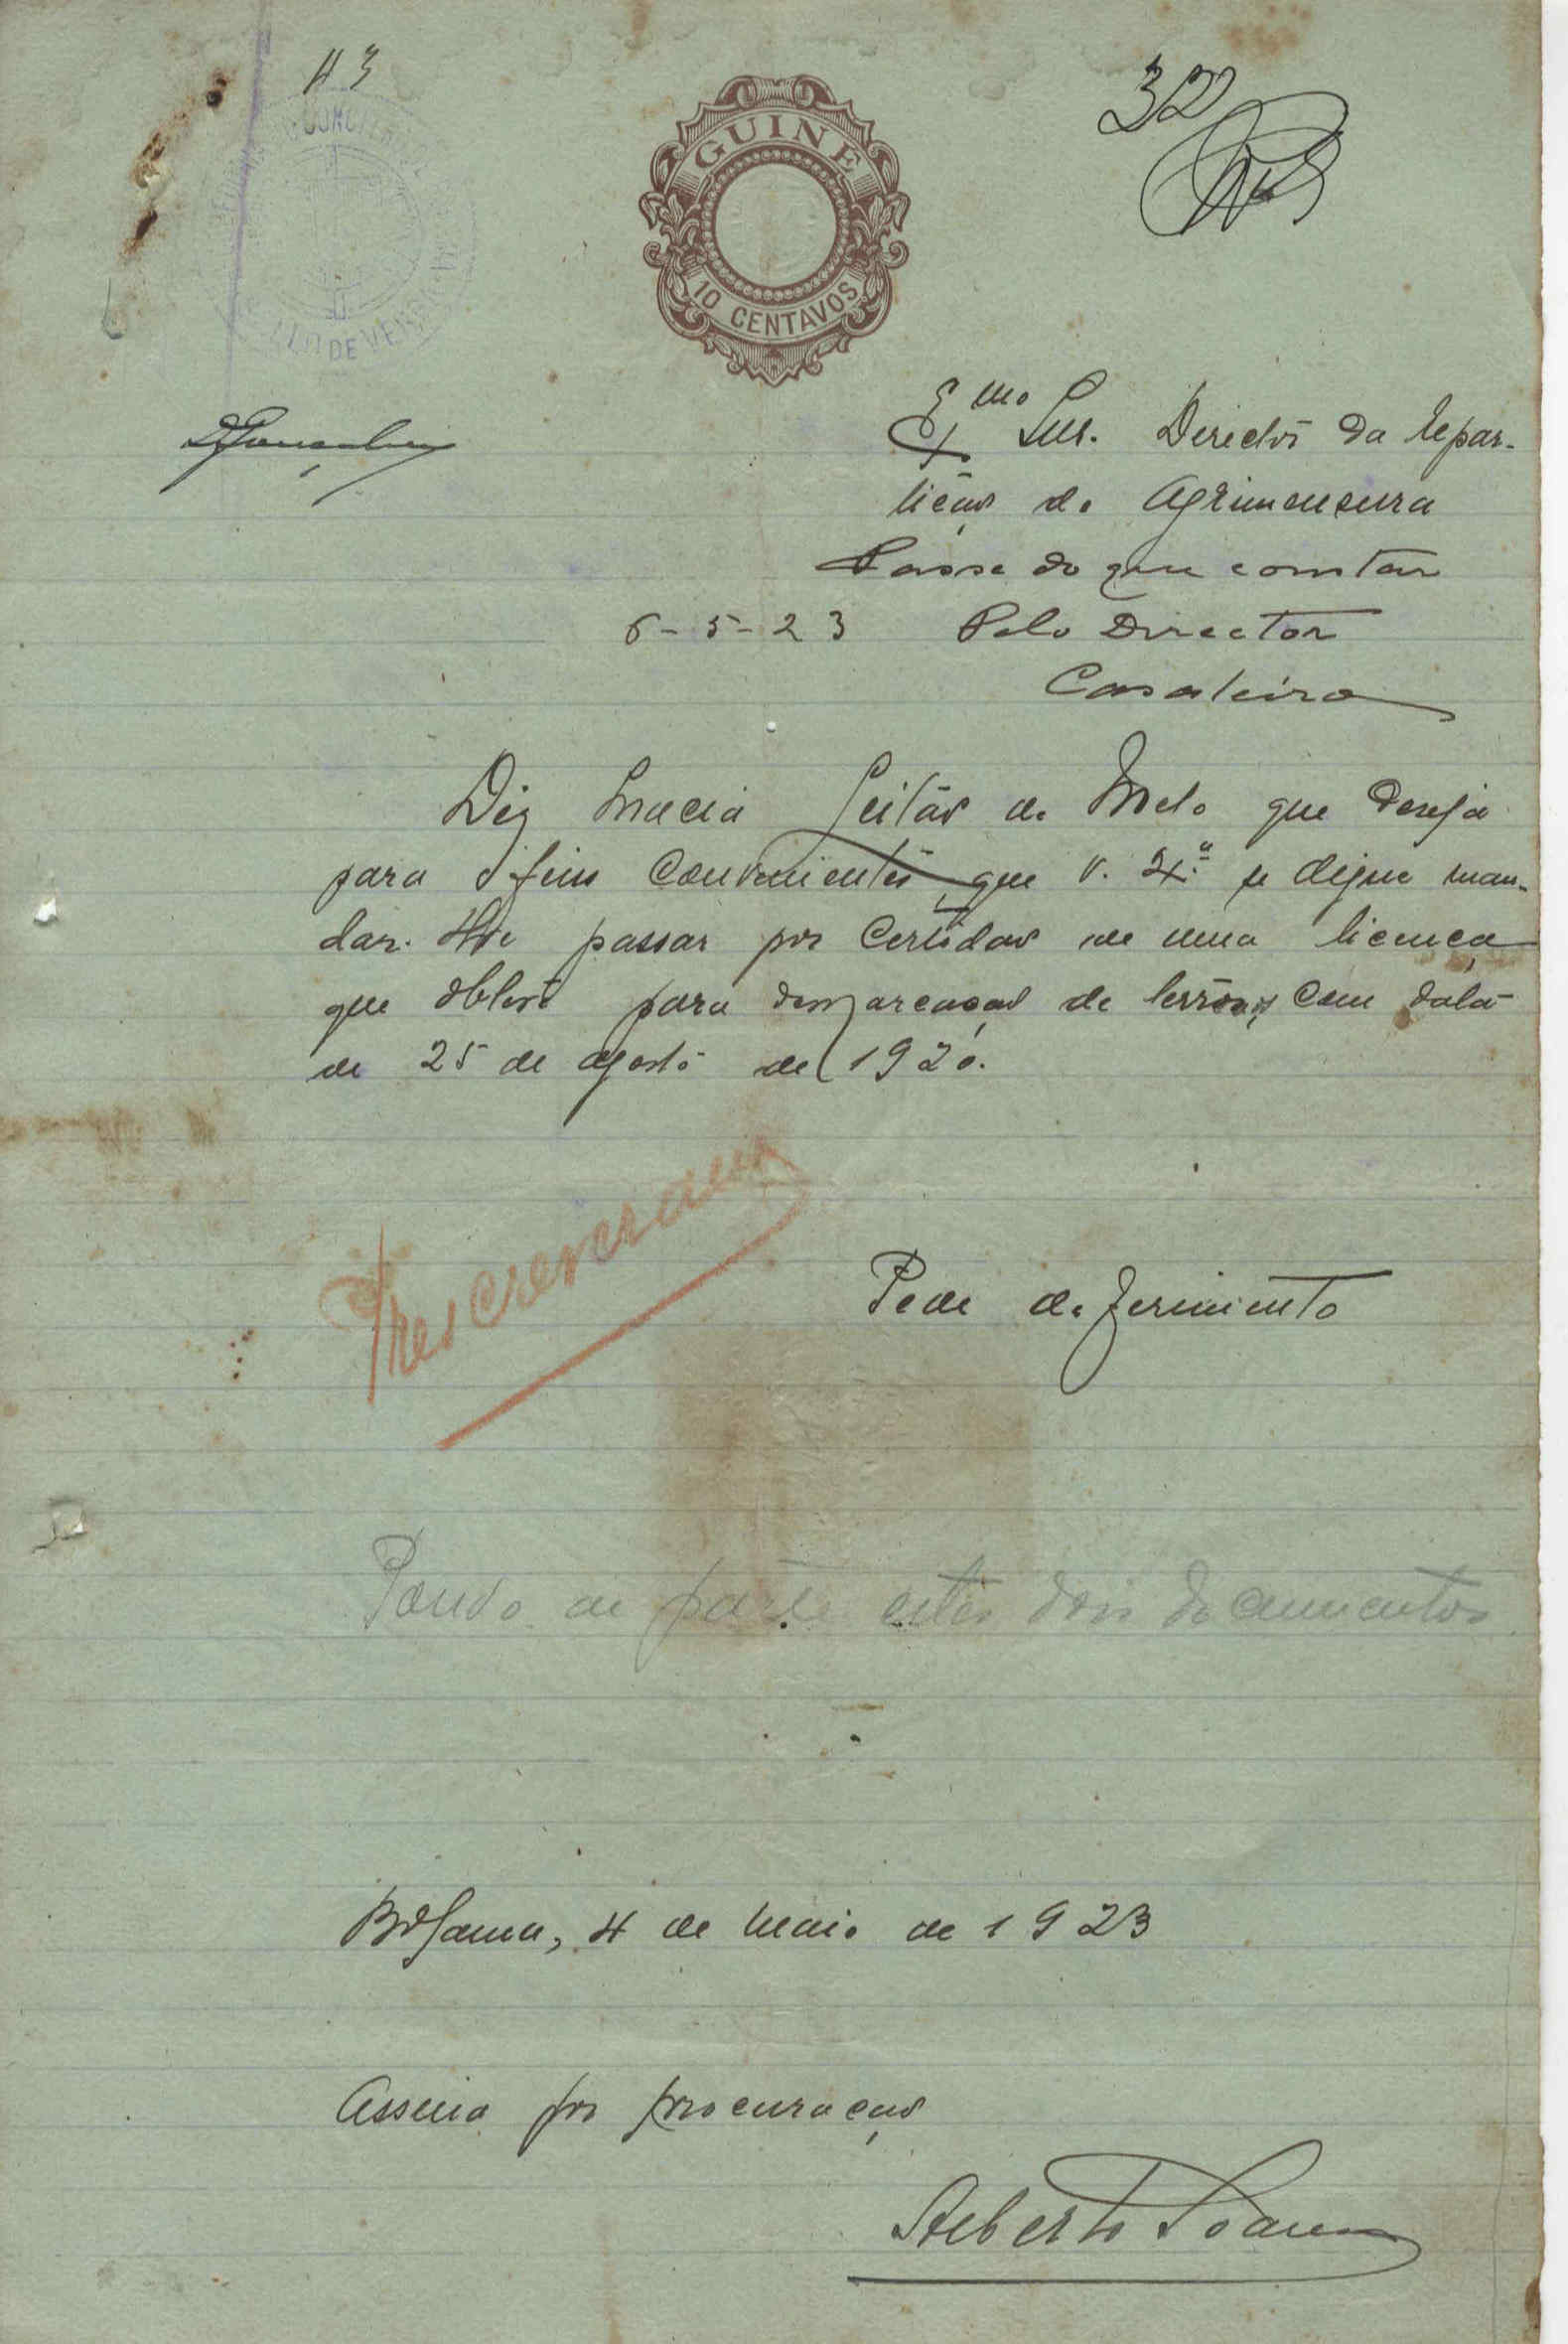 43
32
GUINÉ
10 CENTAVOS
DE VE
Exmo Snr. Director da Repar-
tição de Agrimensura
Passe do que constar
6-5-23 Pelo Director
Casaleiro
Diz Leitão de Melo que deseja
para fins convenientes, que V. Ex.ª se digne man-
dar-lhe passar por certidão de uma licença
que obteve para demarcação de terrenos, com data
de 25 de agosto de 1920.
Prescreveram
Pede deferimento
Pondo de parte estes dois documentos
Bolama, 4 de Maio de 1923
Assina por procuração
Alberto Soares